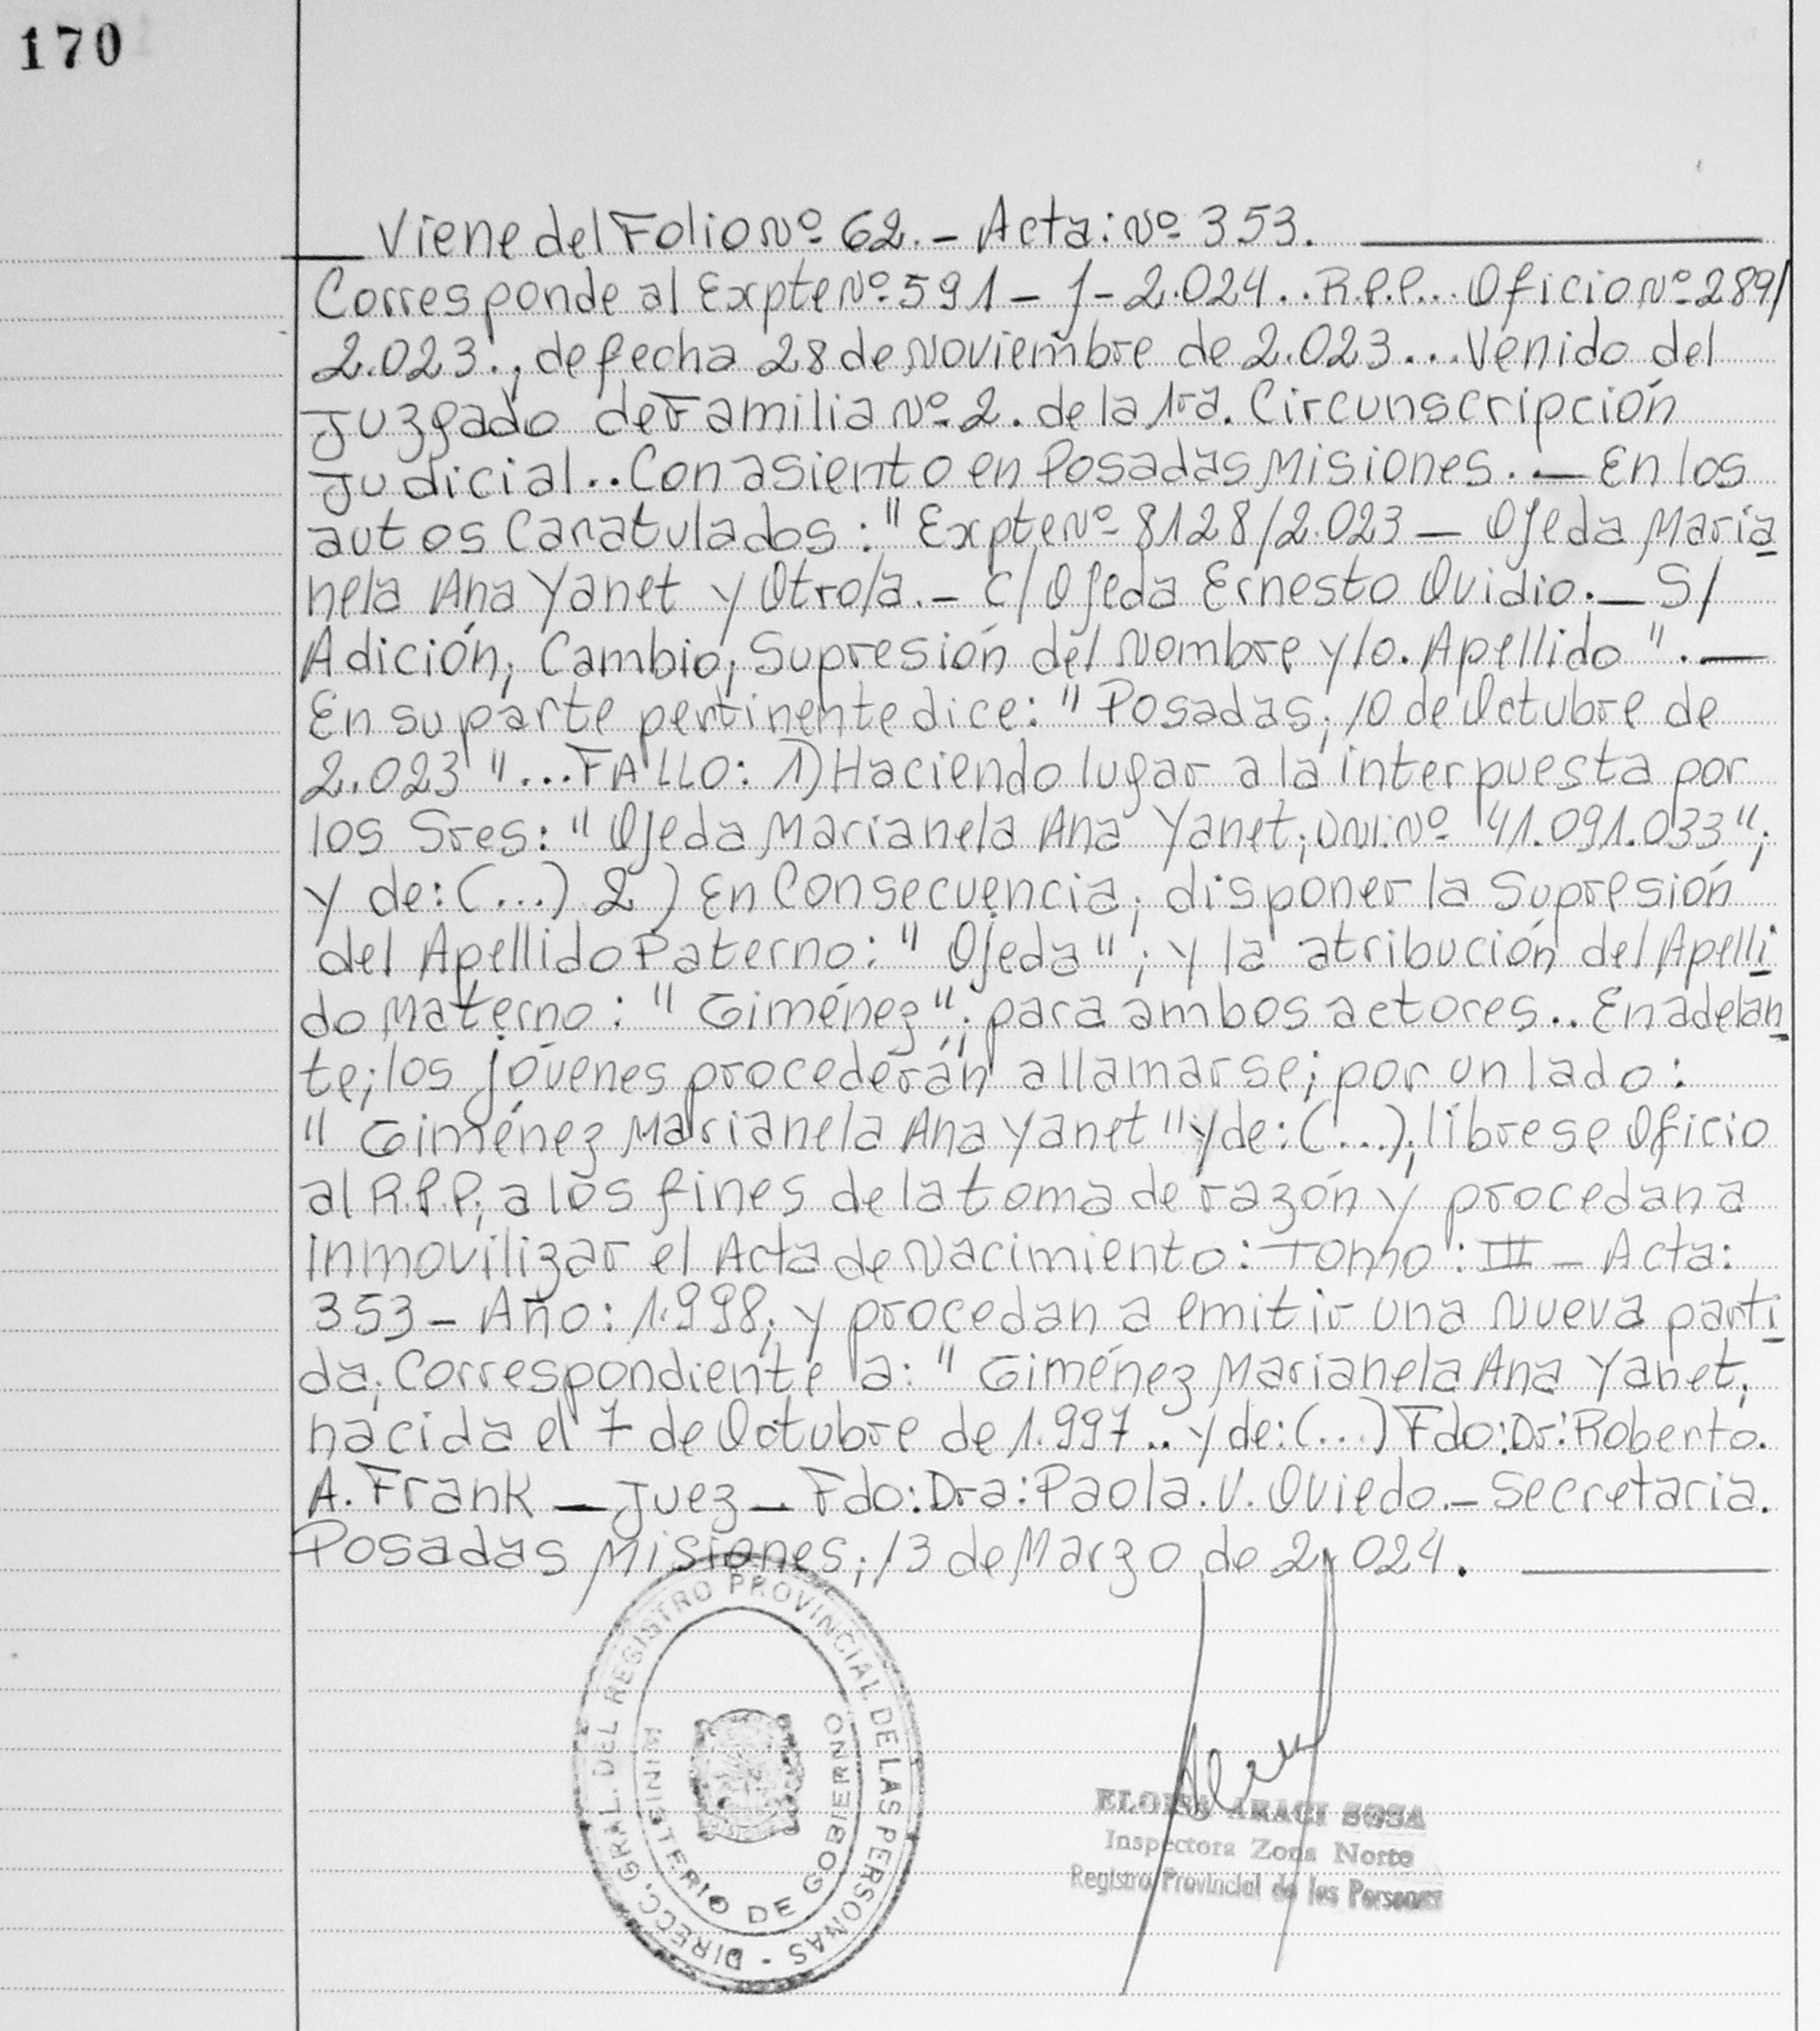 170
Viene del Folio Nº 62. - Acta: Nº 353.
Corresponde al Expte Nº 591 - J - 2.024.. R.P.P... Oficio Nº 289/
2.023., de fecha 28 de Noviembre de 2.023... Venido del
Juzgado de Familia Nº 2. de la 1ra. Circunscripción
Judicial.. Con asiento en Posadas Misiones. — En los
autos Caratulados: "Expte Nº 8128/2.023 — Ojeda Maria
nela Ana Yanet y Otro/a. - C/ Ojeda Ernesto Ovidio. — S/
Adición, Cambio, Supresión del Nombre y/o. Apellido". —
En su parte pertinente dice: "Posadas, 10 de Octubre de
2.023"... FALLO: 1) Haciendo lugar a la interpuesta por
los Sres: "Ojeda Marianela Ana Yanet; DNI: Nº 41.091.033";
y de: (...) 2) En Consecuencia, disponer la Supresión
del Apellido Paterno: "Ojeda"; y la atribución del Apelli
do Materno: "Giménez"; para ambos actores.. En adelan
te; los jóvenes procederán a llamarse; por un lado:
"Giménez Marianela Ana Yanet" y de: (...); líbrese Oficio
al R.P.P; a los fines de la toma de razón y procedan a
inmovilizar el Acta de Nacimiento: Tomo: III - Acta:
353 - Año: 1.998; y procedan a emitir una Nueva parti
da; Correspondiente a: "Giménez Marianela Ana Yanet;
nacida el 7 de Octubre de 1.997.. y de: (...) Fdo: Dr: Roberto.
A. Frank — Juez — Fdo: Dra: Paola. V. Oviedo. - Secretaria.
Posadas Misiones; 13 de Marzo de 2.024.
DIRECC. GRAL. DEL REGISTRO PROVINCIAL DE LAS PERSONAS -
MINISTERIO DE GOBIERNO
ELOISA ARAGI SOSA
Inspectora Zona Norte
Registro Provincial de las Personas